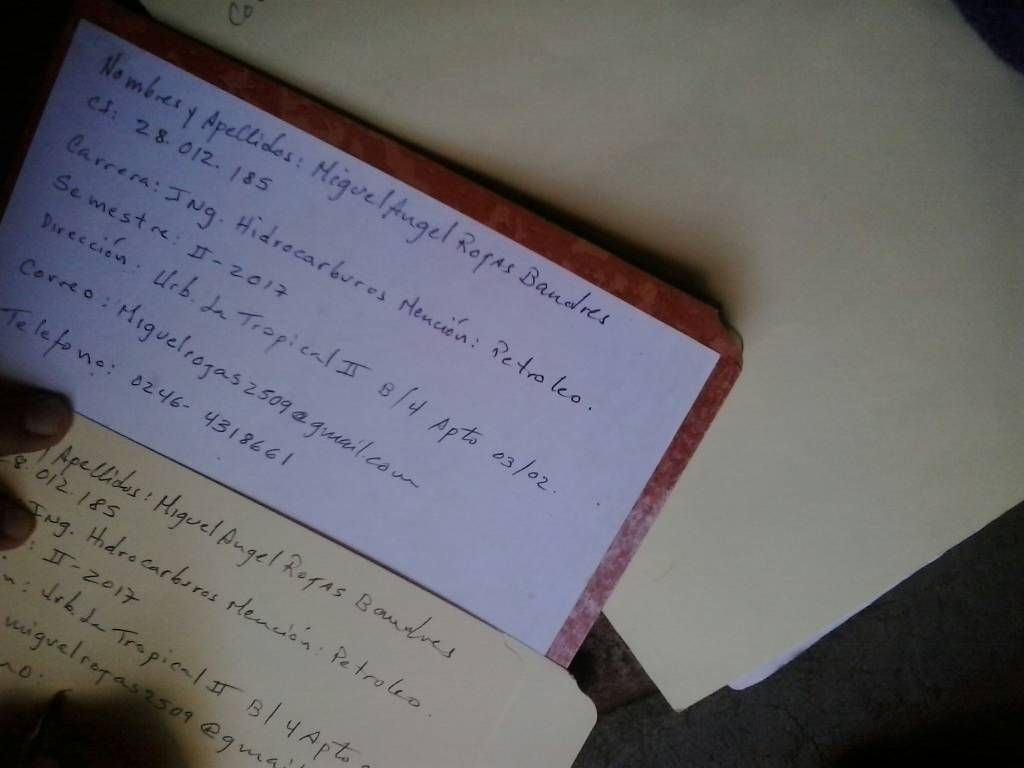 Nombres y Apellidos: Miguel Angel Rojas Bandres
CI: 28.012.185
Carrera: Ing. Hidrocarburos Mención: Petroleo.
Semestre: II-2017
Dirección: Urb. La Tropical II B/4 Apto 03/02.
Correo: Miguelrojas2509@gmail.com
Telefono: 0246-4318661
y Apellidos: Miguel Angel Rojas Bandres
8.012.185
Ing. Hidrocarburos Mención: Petroleo.
: II-2017
n: Urb. La Tropical II B/4 Apto
miguelrojas2509@gmai
no: